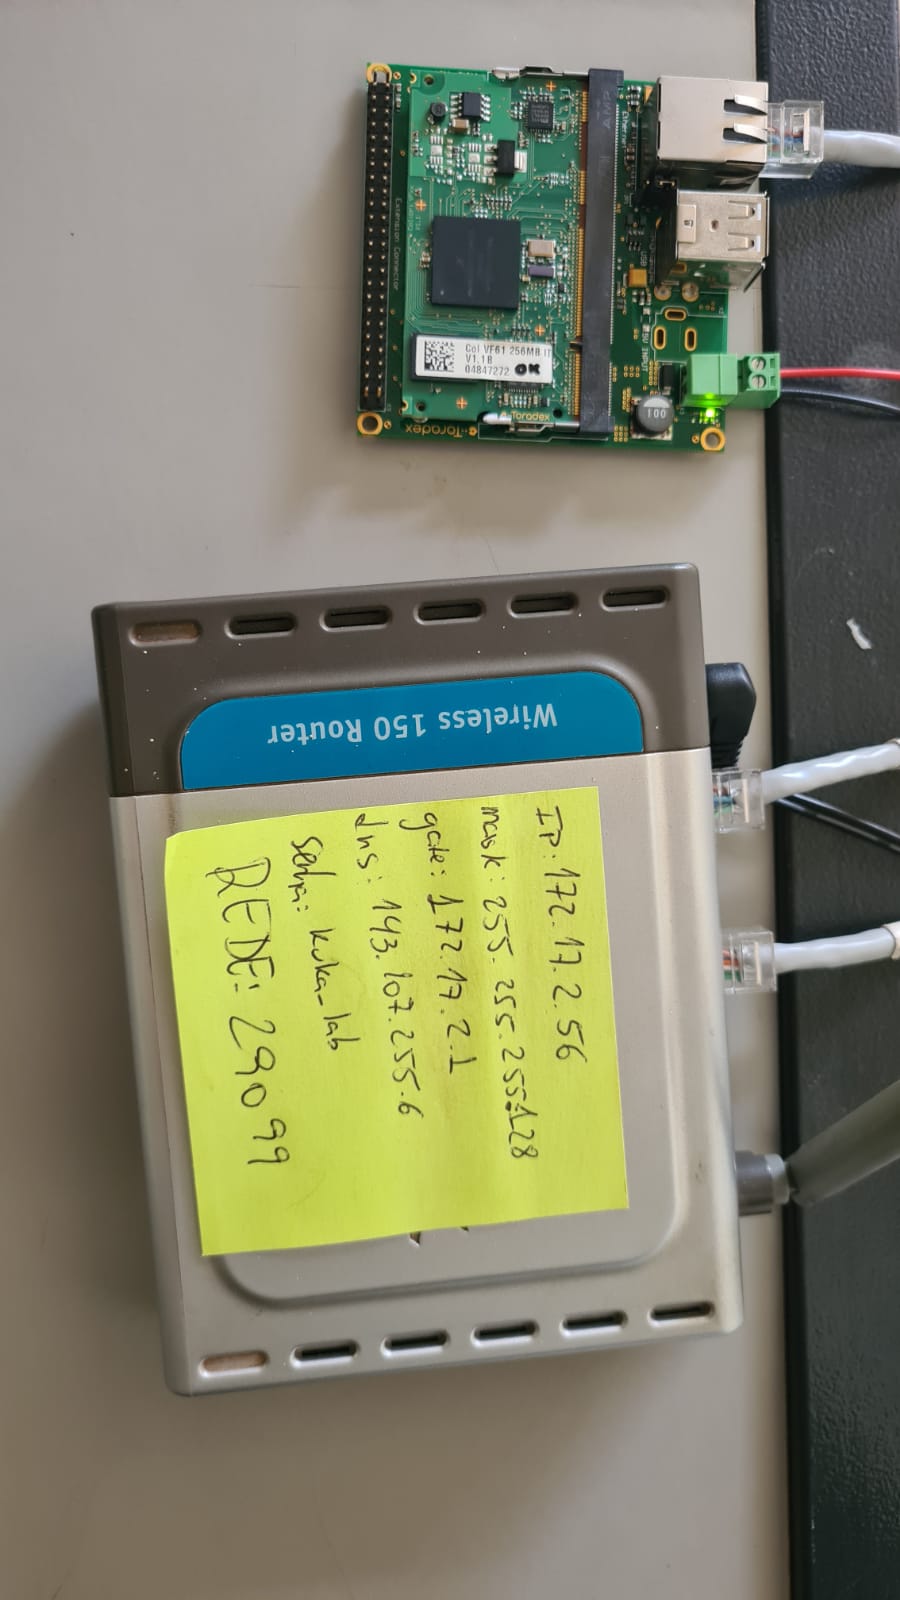 Ethernet
Extension Connector
Col VF61 256MB IT
V1.1B
04847272 OK
Toradex
Toradex
100
AMP
USB
5V INPUT
Wireless 150 Router
IP: 172.17.2.56
mask: 255.255.255.128
gate: 172.17.2.1
dns: 143.107.255.6
senha: kuka_lab
REDE: 29099